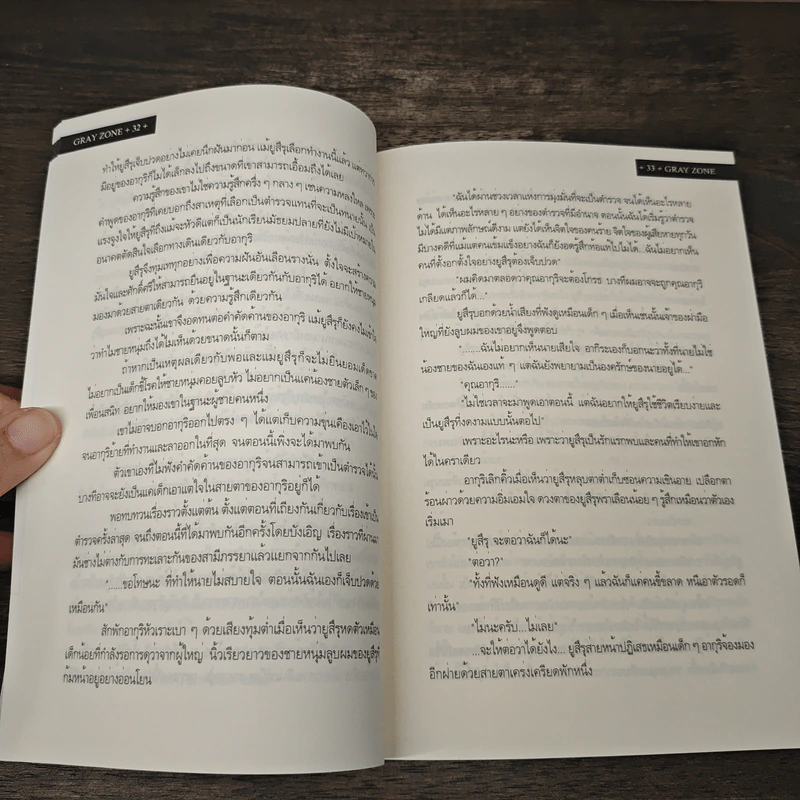 GRAY ZONE + 32 +
ทำให้ยูสึรุเจ็บปวดอย่างไม่เคยนึกฝันมาก่อน แม้ยูสึรุเลือกทำงานนี้แล้ว แต่
มีอยู่ของอากุริก็ไม่ได้เล็กลงไปถึงขนาดที่เขาสามารถเอื้อมถึงได้เลย
ความรู้สึกของเขาไม่ใช่ความรู้สึกครึ่ง ๆ กลาง ๆ เช่นความหลงใหล
คำพูดของอากุริที่เคยบอกถึงสาเหตุที่เลือกเป็นตำรวจแทนที่จะเป็นทนายนั้น
แรงจูงใจให้ยูสึรุที่ถึงแม้จะหัวดีแต่ก็เป็นนักเรียนมัธยมปลายที่ยังไม่มีเป้าหมาย
อนาคตตัดสินใจเลือกทางเดินเดียวกับอากุริ
ยูสึรุจึงทุ่มเททุกอย่างเพื่อความฝันอันเลือนรางนั้น ตั้งใจจะสร้างความ
มั่นใจและศักดิ์ศรีให้สามารถยืนอยู่ในฐานะเดียวกันกับอากุริได้ อยากให้ชายหนุ่ม
มองมาด้วยสายตาเดียวกัน ด้วยความรู้สึกเดียวกัน
เพราะฉะนั้นเขาจึงอดทนต่อคำคัดค้านของอากุริ แม้ยูสึรุก็ยังคงไม่เข้าใจ
ว่าทำไมชายหนุ่มถึงได้ไม่เห็นด้วยขนาดนั้นก็ตาม
ถ้าหากเป็นเหตุผลเดียวกับพ่อและแม่ยูสึรุก็จะไม่ยินยอมเด็ดขาด
ไม่อยากเป็นเด็กขี้โรคให้ชายหนุ่มคอยลูบหัว ไม่อยากเป็นแค่น้องชายตัวเล็ก ๆ ของ
เพื่อนสนิท อยากให้มองเขาในฐานะผู้ชายคนหนึ่ง
เขาไม่อาจบอกอากุริออกไปตรง ๆ ได้แต่เก็บความขุ่นเคืองเอาไว้ในใจ
จนอากุริย้ายที่ทำงานและลาออกในที่สุด จนตอนนี้เพิ่งจะได้มาพบกัน
ตัวเขาเองที่ไม่ฟังคำคัดค้านของอากุริจนสามารถเข้าเป็นตำรวจได้นั้น
บางทีอาจจะยังเป็นแค่เด็กเอาแต่ใจในสายตาของอากุริอยู่ก็ได้
พอทบทวนเรื่องราวตั้งแต่ต้น ตั้งแต่ตอนที่เถียงกันเกี่ยวกับเรื่องเข้าเป็น
ตำรวจครั้งล่าสุด จนถึงตอนนี้ที่ได้มาพบกันอีกครั้งโดยบังเอิญ เรื่องราวที่ผ่านมา
มันช่างไม่ต่างกับการทะเลาะกันของสามีภรรยาแล้วแยกจากกันไปเลย
"......ขอโทษนะ ที่ทำให้นายไม่สบายใจ ตอนนั้นฉันเองก็เจ็บปวดด้วย
เหมือนกัน"
สักพักอากุริหัวเราะเบา ๆ ด้วยเสียงทุ้มต่ำเมื่อเห็นว่ายูสึรุหดตัวเหมือน
เด็กน้อยที่กำลังรอการดุว่าจากผู้ใหญ่ นิ้วเรียวยาวของชายหนุ่มลูบผมของยูสึรุที่
ก้มหน้าอยู่อย่างอ่อนโยน
+ 33 + GRAY ZONE
"ฉันได้ผ่านช่วงเวลาแห่งการมุ่งมั่นที่จะเป็นตำรวจ จนได้เห็นอะไรหลาย
ด้าน ได้เห็นอะไรหลาย ๆ อย่างของตำรวจที่มีอำนาจ ตอนนั้นฉันได้เริ่มรู้ว่าตำรวจ
ไม่ได้มีแต่ภาพลักษณ์ดีงาม แต่ยังได้เห็นจิตใจของคนร้าย จิตใจของผู้เสียหายทุกวัน
มีบางคดีที่แม้แต่คนเข้มแข็งอย่างฉันก็ยังอดรู้สึกท้อแท้ไปไม่ได้...ฉันไม่อยากเห็น
คนที่ตั้งอกตั้งใจอย่างยูสึรุต้องเจ็บปวด"
"ผมคิดมาตลอดว่าคุณอากุริจะต้องโกรธ บางทีผมอาจจะถูกคุณอากุริ
เกลียดแล้วก็ได้..."
ยูสึรุบอกด้วยน้ำเสียงที่ฟังดูเหมือนเด็ก ๆ เมื่อเห็นเช่นนั้นเจ้าของฝ่ามือ
ใหญ่ที่ยังลูบผมของเขาอยู่จึงพูดตอบ
".......ฉันไม่อยากเห็นนายเสียใจ อากิระเองก็บอกนะว่าทั้งที่นายไม่ใช่
น้องชายของฉันเองแท้ ๆ แต่ฉันยังพยายามเป็นองครักษ์ของนายอยู่ได้..."
"คุณอากุริ......"
"ไม่ใช่เวลาจะมาพูดเอาตอนนี้ แต่ฉันอยากให้ยูสึรุใช้ชีวิตเรียบง่ายและ
เป็นยูสึรุที่งดงามแบบนั้นต่อไป"
เพราะอะไรนะหรือ เพราะว่ายูสึรุเป็นรักแรกพบและคนที่ทำให้เขาอกหัก
ได้ในคราเดียว
อากุริเลิกคิ้วเมื่อเห็นว่ายูสึรุหลุบตาต่ำเก็บซ่อนความเขินอาย เปลือกตา
ร้อนผ่าวด้วยความอิ่มเอมใจ ดวงตาของยูสึรุพราเลือนน้อย ๆ รู้สึกเหมือนว่าตัวเอง
เริ่มเมา
"ยูสึรุ จะต่อว่าฉันก็ได้นะ"
"ต่อว่า?"
"ทั้งที่ฟังเหมือนดูดี แต่จริง ๆ แล้วฉันก็แค่คนขี้ขลาด หนีเอาตัวรอดก็
เท่านั้น"
"ไม่นะครับ...ไม่เลย"
...จะให้ต่อว่าได้ยังไง... ยูสึรุส่ายหน้าปฏิเสธเหมือนเด็ก ๆ อากุริจ้องมอง
อีกฝ่ายด้วยสายตาเคร่งเครียดพักหนึ่ง